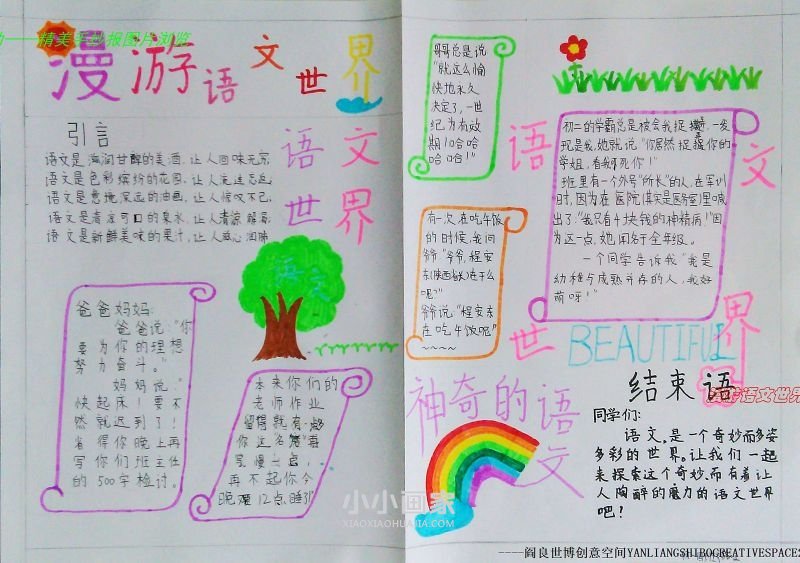 精美手抄报图片浏览
漫游语文世界
引言
语文是
甘醇的美酒,让人回味无穷
语文是色彩缤纷的花园,让人流连忘返
语文是意境深远的油画,让人惊叹不已
语文是清凉可口的泉水,让人清凉解暑
语文是新鲜美味的果汁,让人
语文
世界
语文
爸爸妈妈:
爸爸说:"你
要为你的理想
努力奋斗。"
妈妈说:"
快起床!要不
然就迟到了!
省得你晚上再
写你们班主任
的500字检讨。
本来你们的
老师作业
留得就有
你这
写慢
再不起你今
晚
12点睡!"
哥哥总是说
"就这么愉
快地永久
决定了,一世
纪为有效
期!哈哈
哈哈!"
有一次,在吃午饭
的时候,我问
爷爷"爷爷,程安
东
在干么
呢?"
爷爷说:"程安东
在吃午饭呢"
~~~~
语文
世界
初二的学霸总是被会我捉
,一发
现是我,她就说"你居然捉
你的
学姐,看我
死你!"
班里有一个外号"所长"的人,在军训
时,因为在医院(其实是医务室)里喊
出了:"我只有4块钱的神精病!"因
为这一点,她闹名于全年级。
一个同学告诉我"我是
幼稚与成熟并存的人,我好
萌呀!"
BEAUTIFUL
神奇的语
文
结束语
语文世界
同学们:
语文,是一个奇妙而多姿
多彩的世界。让我们一起
来探索这个奇妙,而有着让
人陶醉的魔力的语文世界
吧?
小小画家
XIAOXIAOHUAJIA.COM
----阎良世博创意空间YANLIANGSHIBOCREATIVESPACE2